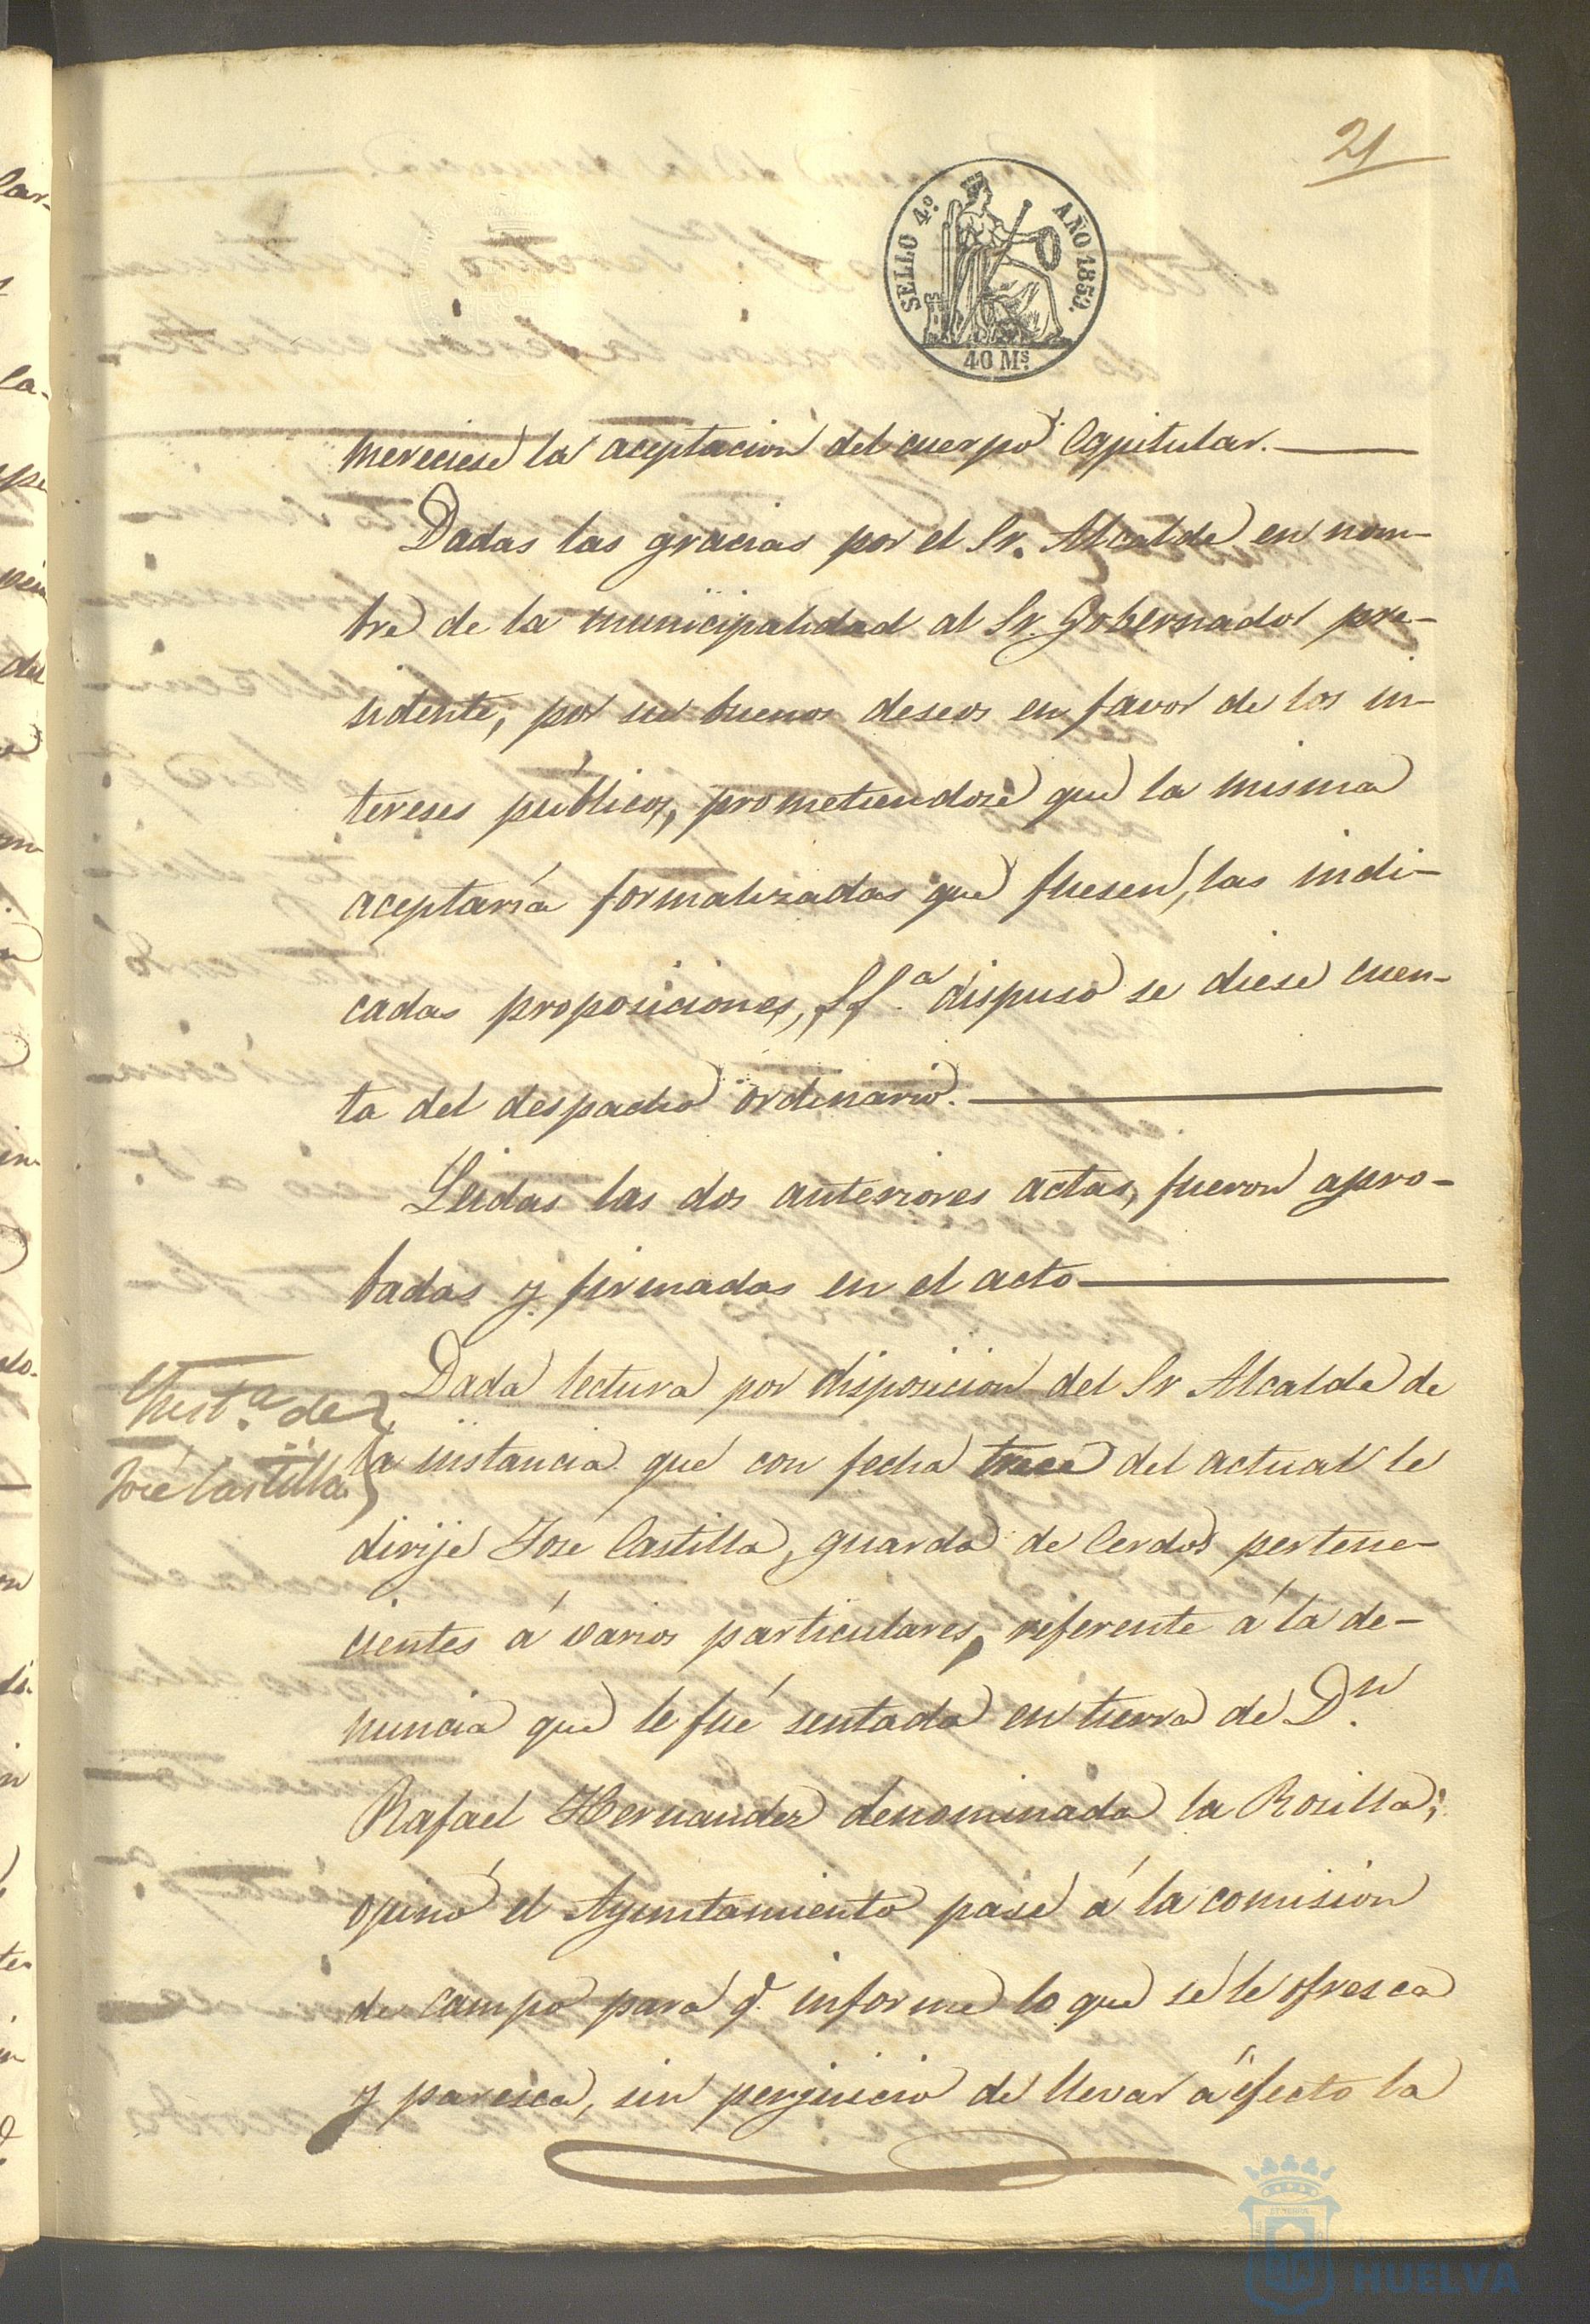 21
SELLO 4º. AÑO 1853.
40 Mˢ.
mereciese la aceptacion del cuerpo Capitular.
Dadas las gracias por el Sr. Alcalde en nom-
bre de la municipalidad al Sr. Gobernador pre-
sidente, por sus buenos deseos en favor de los in-
tereses públicos, prometiendose que la misma
aceptaría formalizadas que fuesen, las indi-
cadas proposiciones, SSª. dispuso se diese cuen-
ta del despacho ordinario.
Leidas las dos anteriores actas, fueron apro-
badas y firmadas en el acto
Dada lectura por disposicion del Sr Alcalde de
Instª. de
José Castilla
la instancia que con fecha trece del actual le
dirije José Castilla, guarda de Cerdos pertene-
cientes á varios particulares, referente á la de-
nuncia que le fué sentada en tierra de Dⁿ.
Rafael Hernandez denominada la Rosilla;
opinó el Ayuntamiento pase á la comision
de campo para q. informe lo que se le ofresca
y paresca, sin perjuicio de llevar á efecto la
HUELVA